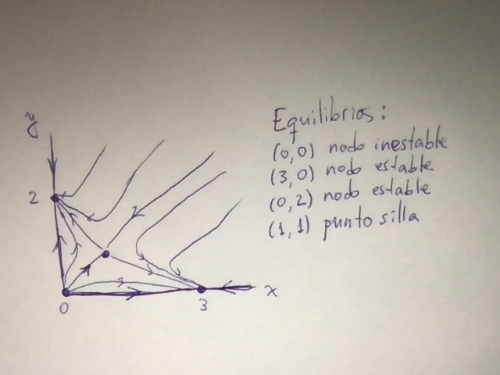 y
Equilibrios:
(0,0) nodo inestable
(3,0) nodo estable
2
(0,2) nodo estable
(1,1) punto silla
x
0
3